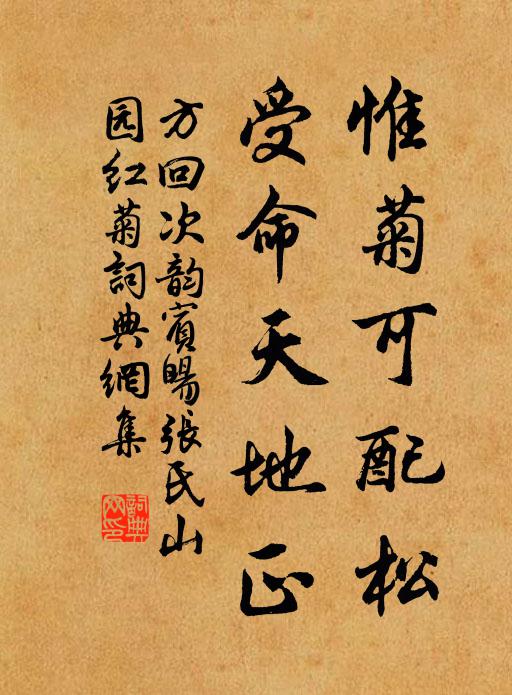 惟菊可配松
受命天地正
方回次韵宾旸張氏山
园红菊詞典網集
詞典
网印